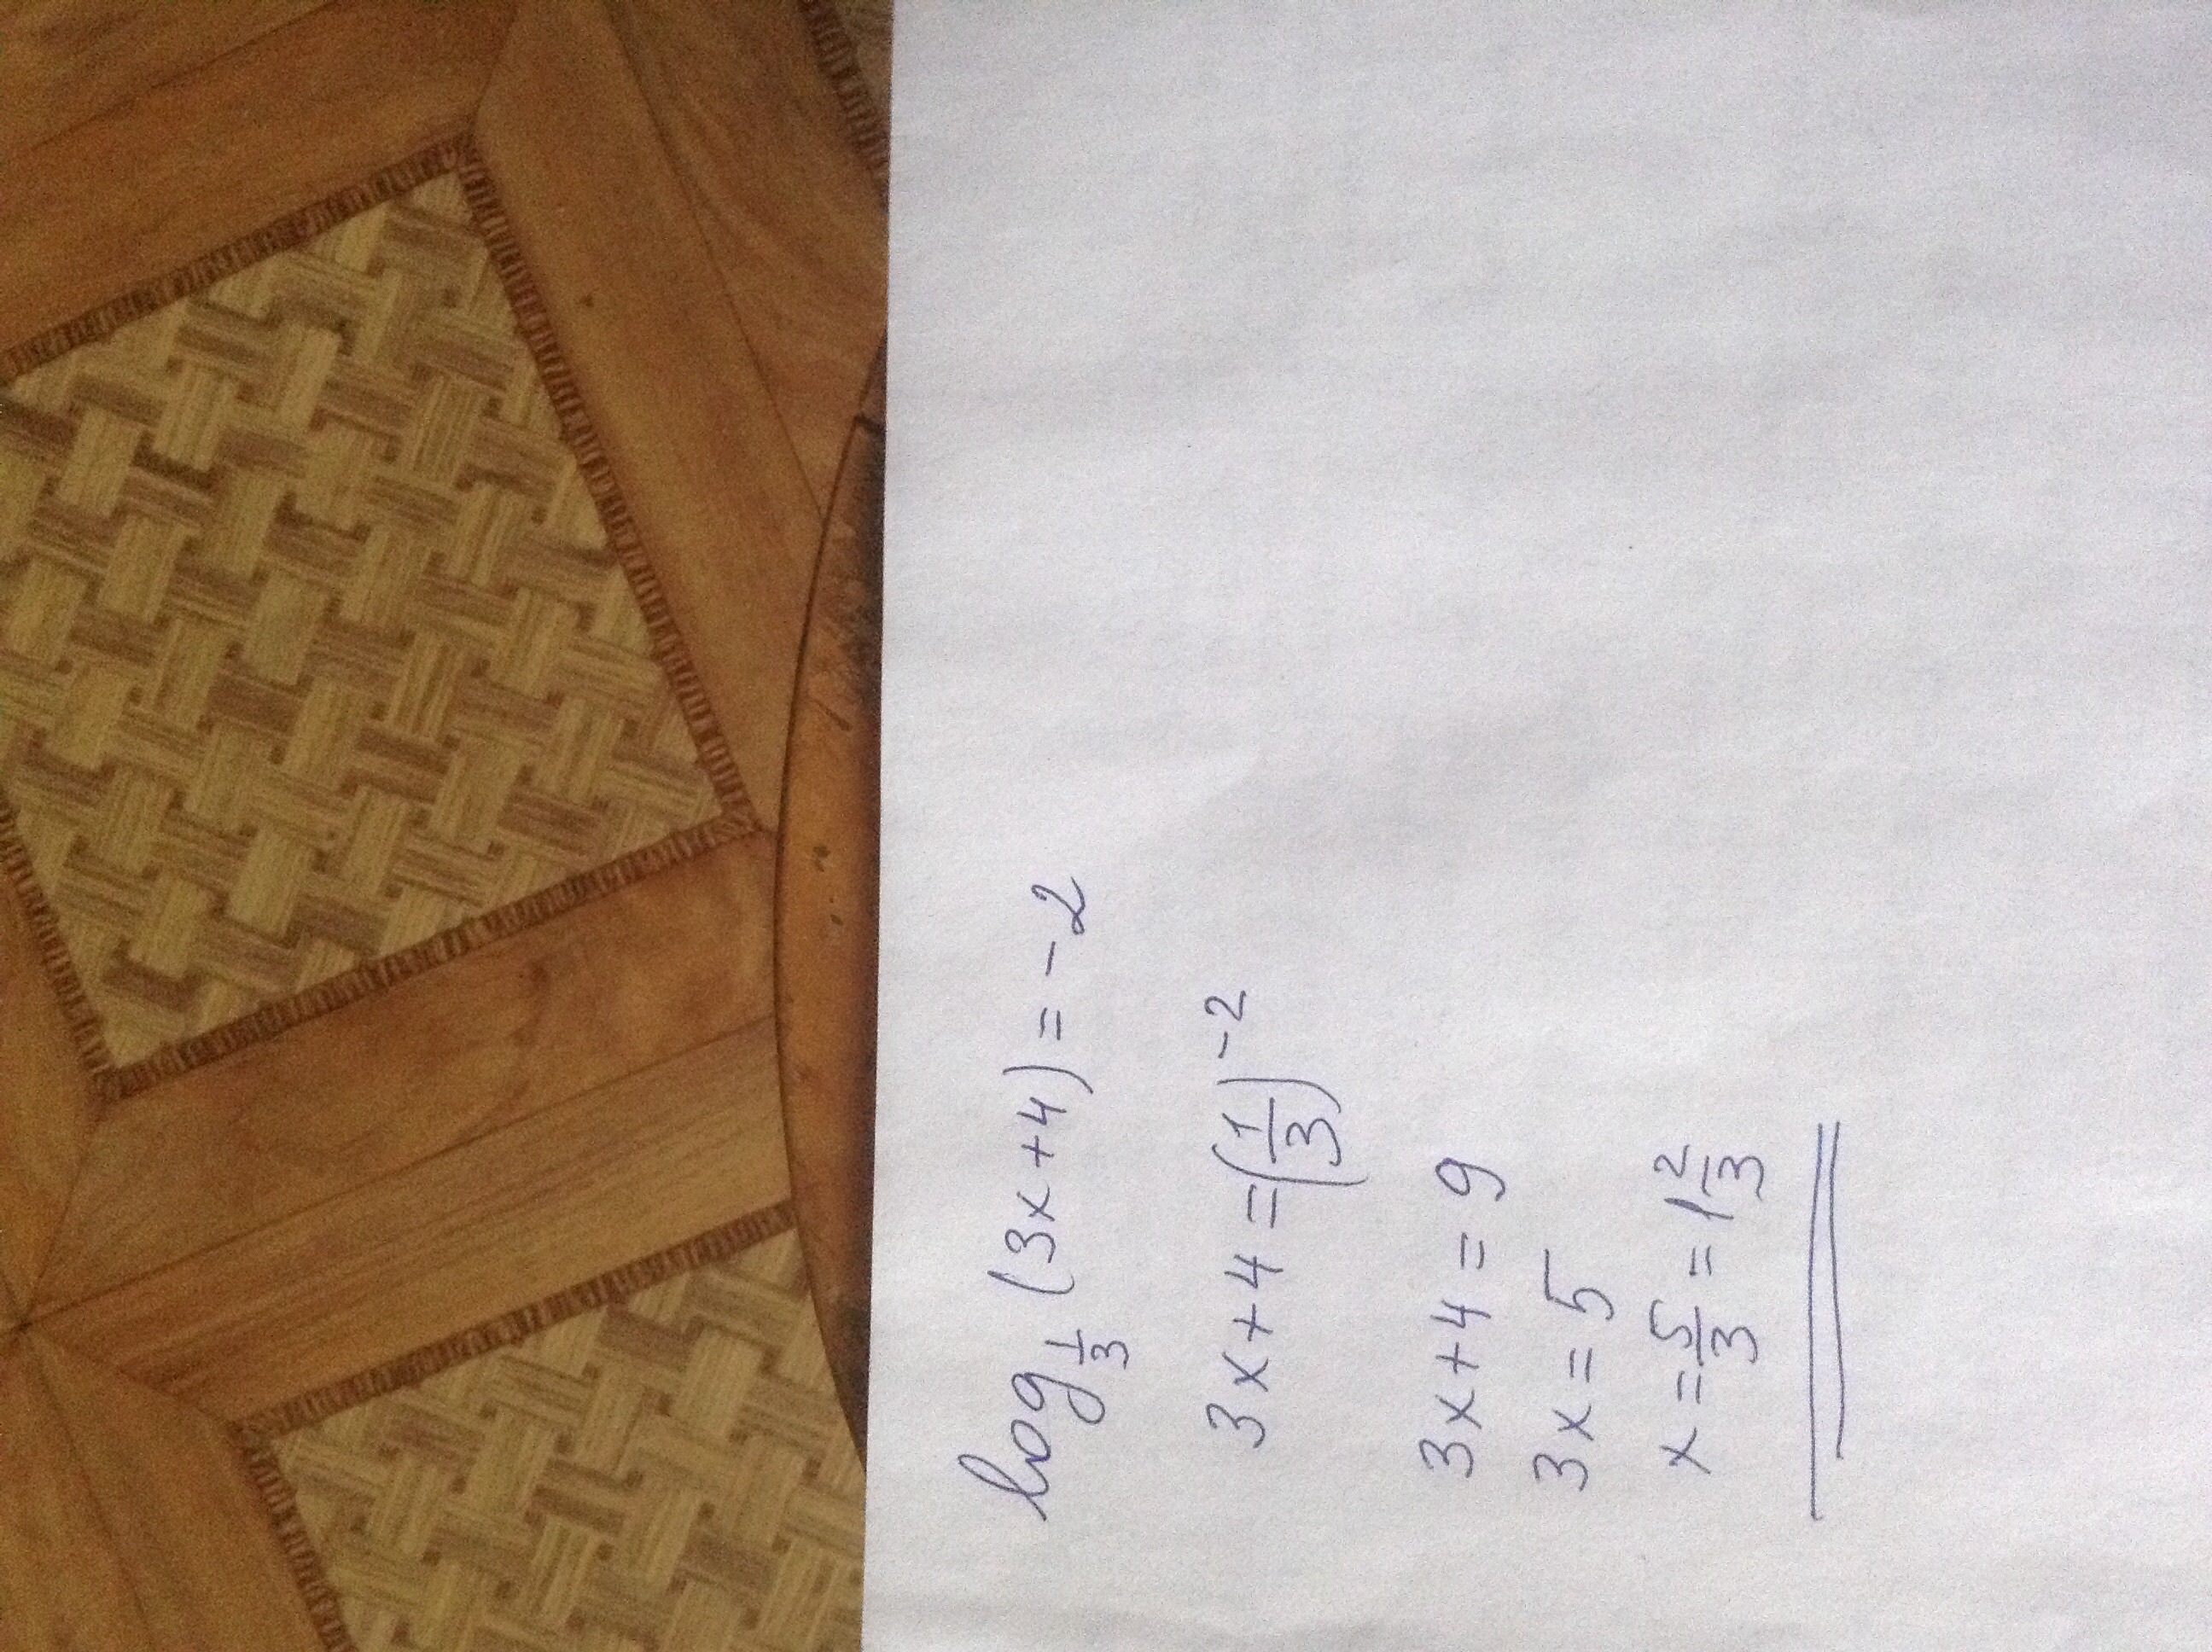 log_{1/3} (3x+4) = -2
3x+4 = (1/3)^{-2}
3x+4 = 9
3x = 5
x = 5/3 = 1 2/3